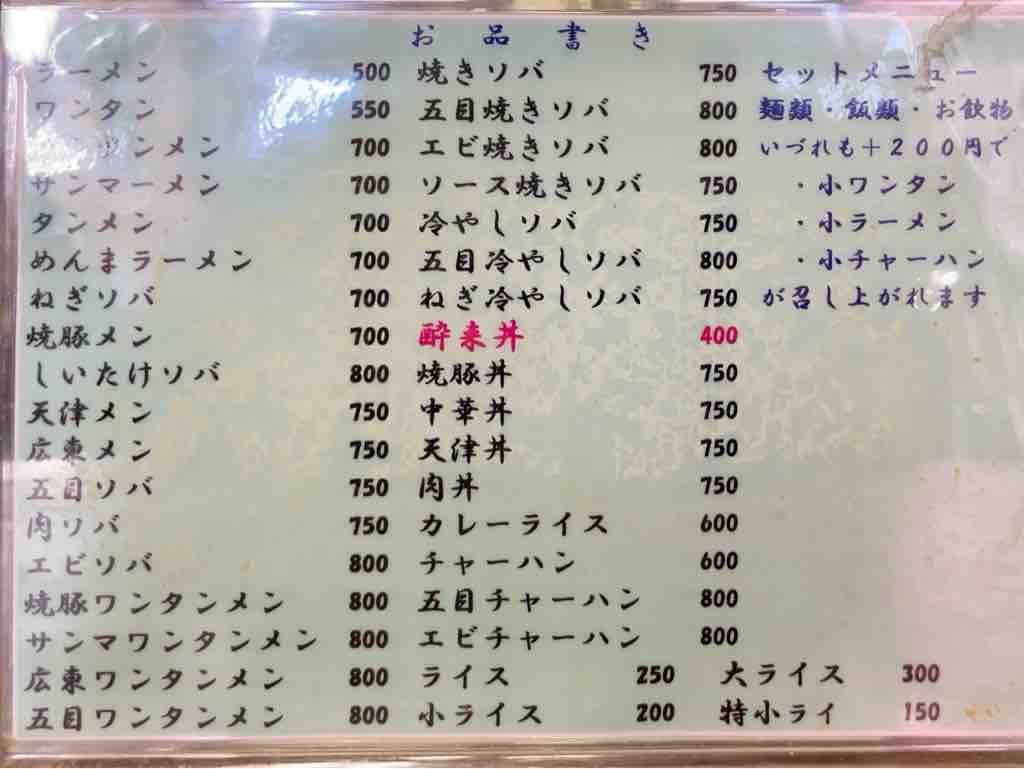 お品書き
ラーメン 500
ワンタン 550
ンメン 700
サンマーメン 700
タンメン 700
めんまラーメン 700
ねぎソバ 700
焼豚メン 700
しいたけソバ 800
天津メン 750
広東メン 750
五目ソバ 750
肉ソバ 750
エビソバ 800
焼豚ワンタンメン 800
サンマワンタンメン 800
広東ワンタンメン 800
五目ワンタンメン 800
焼きソバ 750
五目焼きソバ 800
エビ焼きソバ 800
ソース焼きソバ 750
冷やしソバ 750
五目冷やしソバ 800
ねぎ冷やしソバ 750
酔来丼 400
焼豚丼 750
中華丼 750
天津丼 750
肉丼 750
カレーライス 600
チャーハン 600
五目チャーハン 800
エビチャーハン 800
ライス 250 大ライス 300
小ライス 200 特小ライ 150
セットメニュー
麺類・飯類・お飲物
いづれも+200円で
・小ワンタン
・小ラーメン
・小チャーハン
が召し上がれます